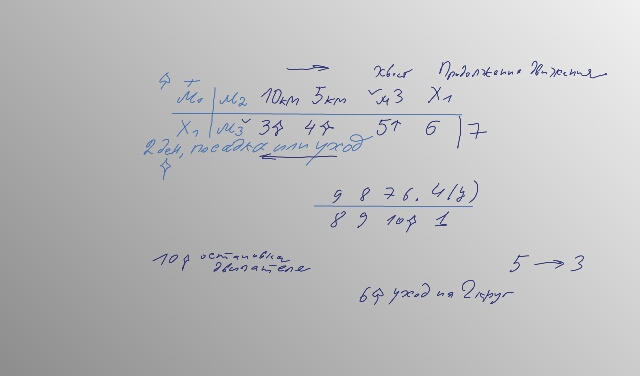 → хвост Продолжение движения
М1 | М2 10км 5км ˇМ3 Х1
Х1 | М3ˇ 3⇧ 4⇧ 5↑ 6 | 7
2 ден, посадка или уход
9 8 7 6. 4(у)
8 9 10⇧ 1
10⇧ остановка
двигателя
5 → 3
6⇧ уход на 2 круг